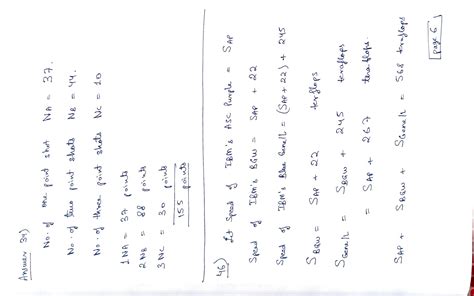 Answer 34)
No. of one point shot NA = 37.
No. of two point shots NB = 44.
No. of three point shots NC = 10
1NA = 37 points
2NB = 88 points
3NC = 30 points
155 points
46) Let Speed of IBM's ASC Purple = SAP
Speed of IBM's BGW = SAP + 22
Speed of IBM's Blue Gene/L = (SAP + 22) + 245
SBGW = SAP + 22 teraflops
SGene/L = SBGW + 245 teraflops
= SAP + 267 teraflops.
SAP + SBGW + SGene/L = 568 teraflops
page 6